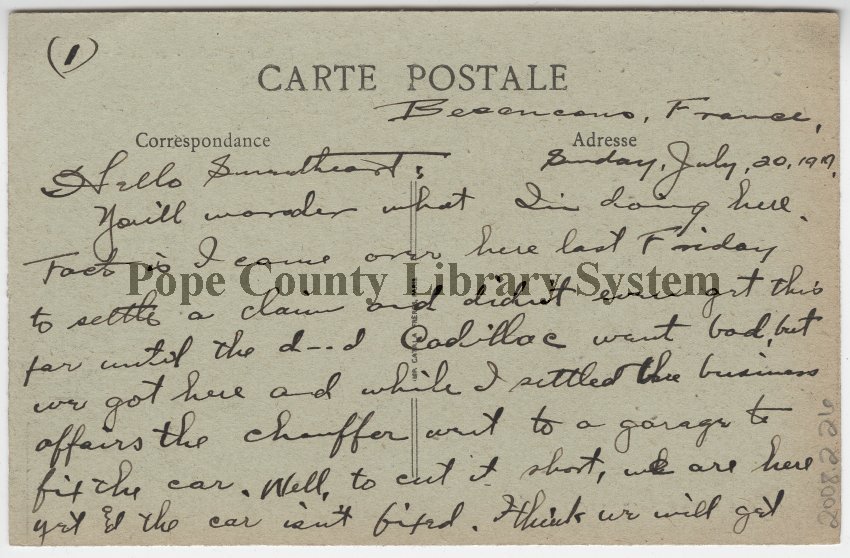 (1)
CARTE POSTALE
Besancons, France,
Correspondance
Adresse
Sunday, July, 20, 1919.
Hello Sweetheart:
You'll wonder what I'm doing here.
Fact is I came over here last Friday
Pope County Library System
to settle a claim and didn't even get this
far until the d---d Cadillac went bad, but
we got here and while I settled the business
affairs the chauffer went to a garage to
fix the car. Well, to cut it short, we are here
yet & the car isn't fixed. I think we will get
2008.2.26